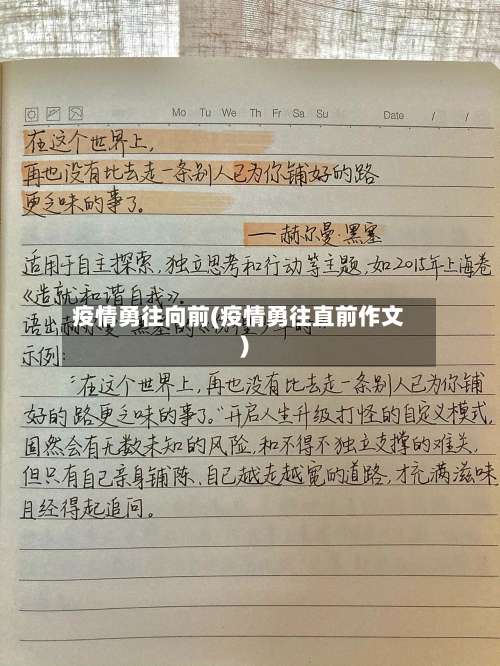 Mo Tu We Th Fr Sa Su Date / /
在这个世界上，
再也没有比去走一条别人已为你铺好的路
更乏味的事了。
——赫尔曼·黑塞
适用于自主探索，独立思考和行动等主题，如2015年上海卷
《造就和谐自我》。
疫情勇往向前(疫情勇往直前作文
)
语出赫尔曼·黑塞的
示例：
“在这个世界上，再也没有比去走一条别人已为你铺
好的路更乏味的事了。”开启人生升级打怪的自定义模式，
固然会有无数未知的风险，和不得不独立支撑的难关，
但只有自己亲身铺陈，自己越走越宽的道路，才充满滋味，
且经得起追问。